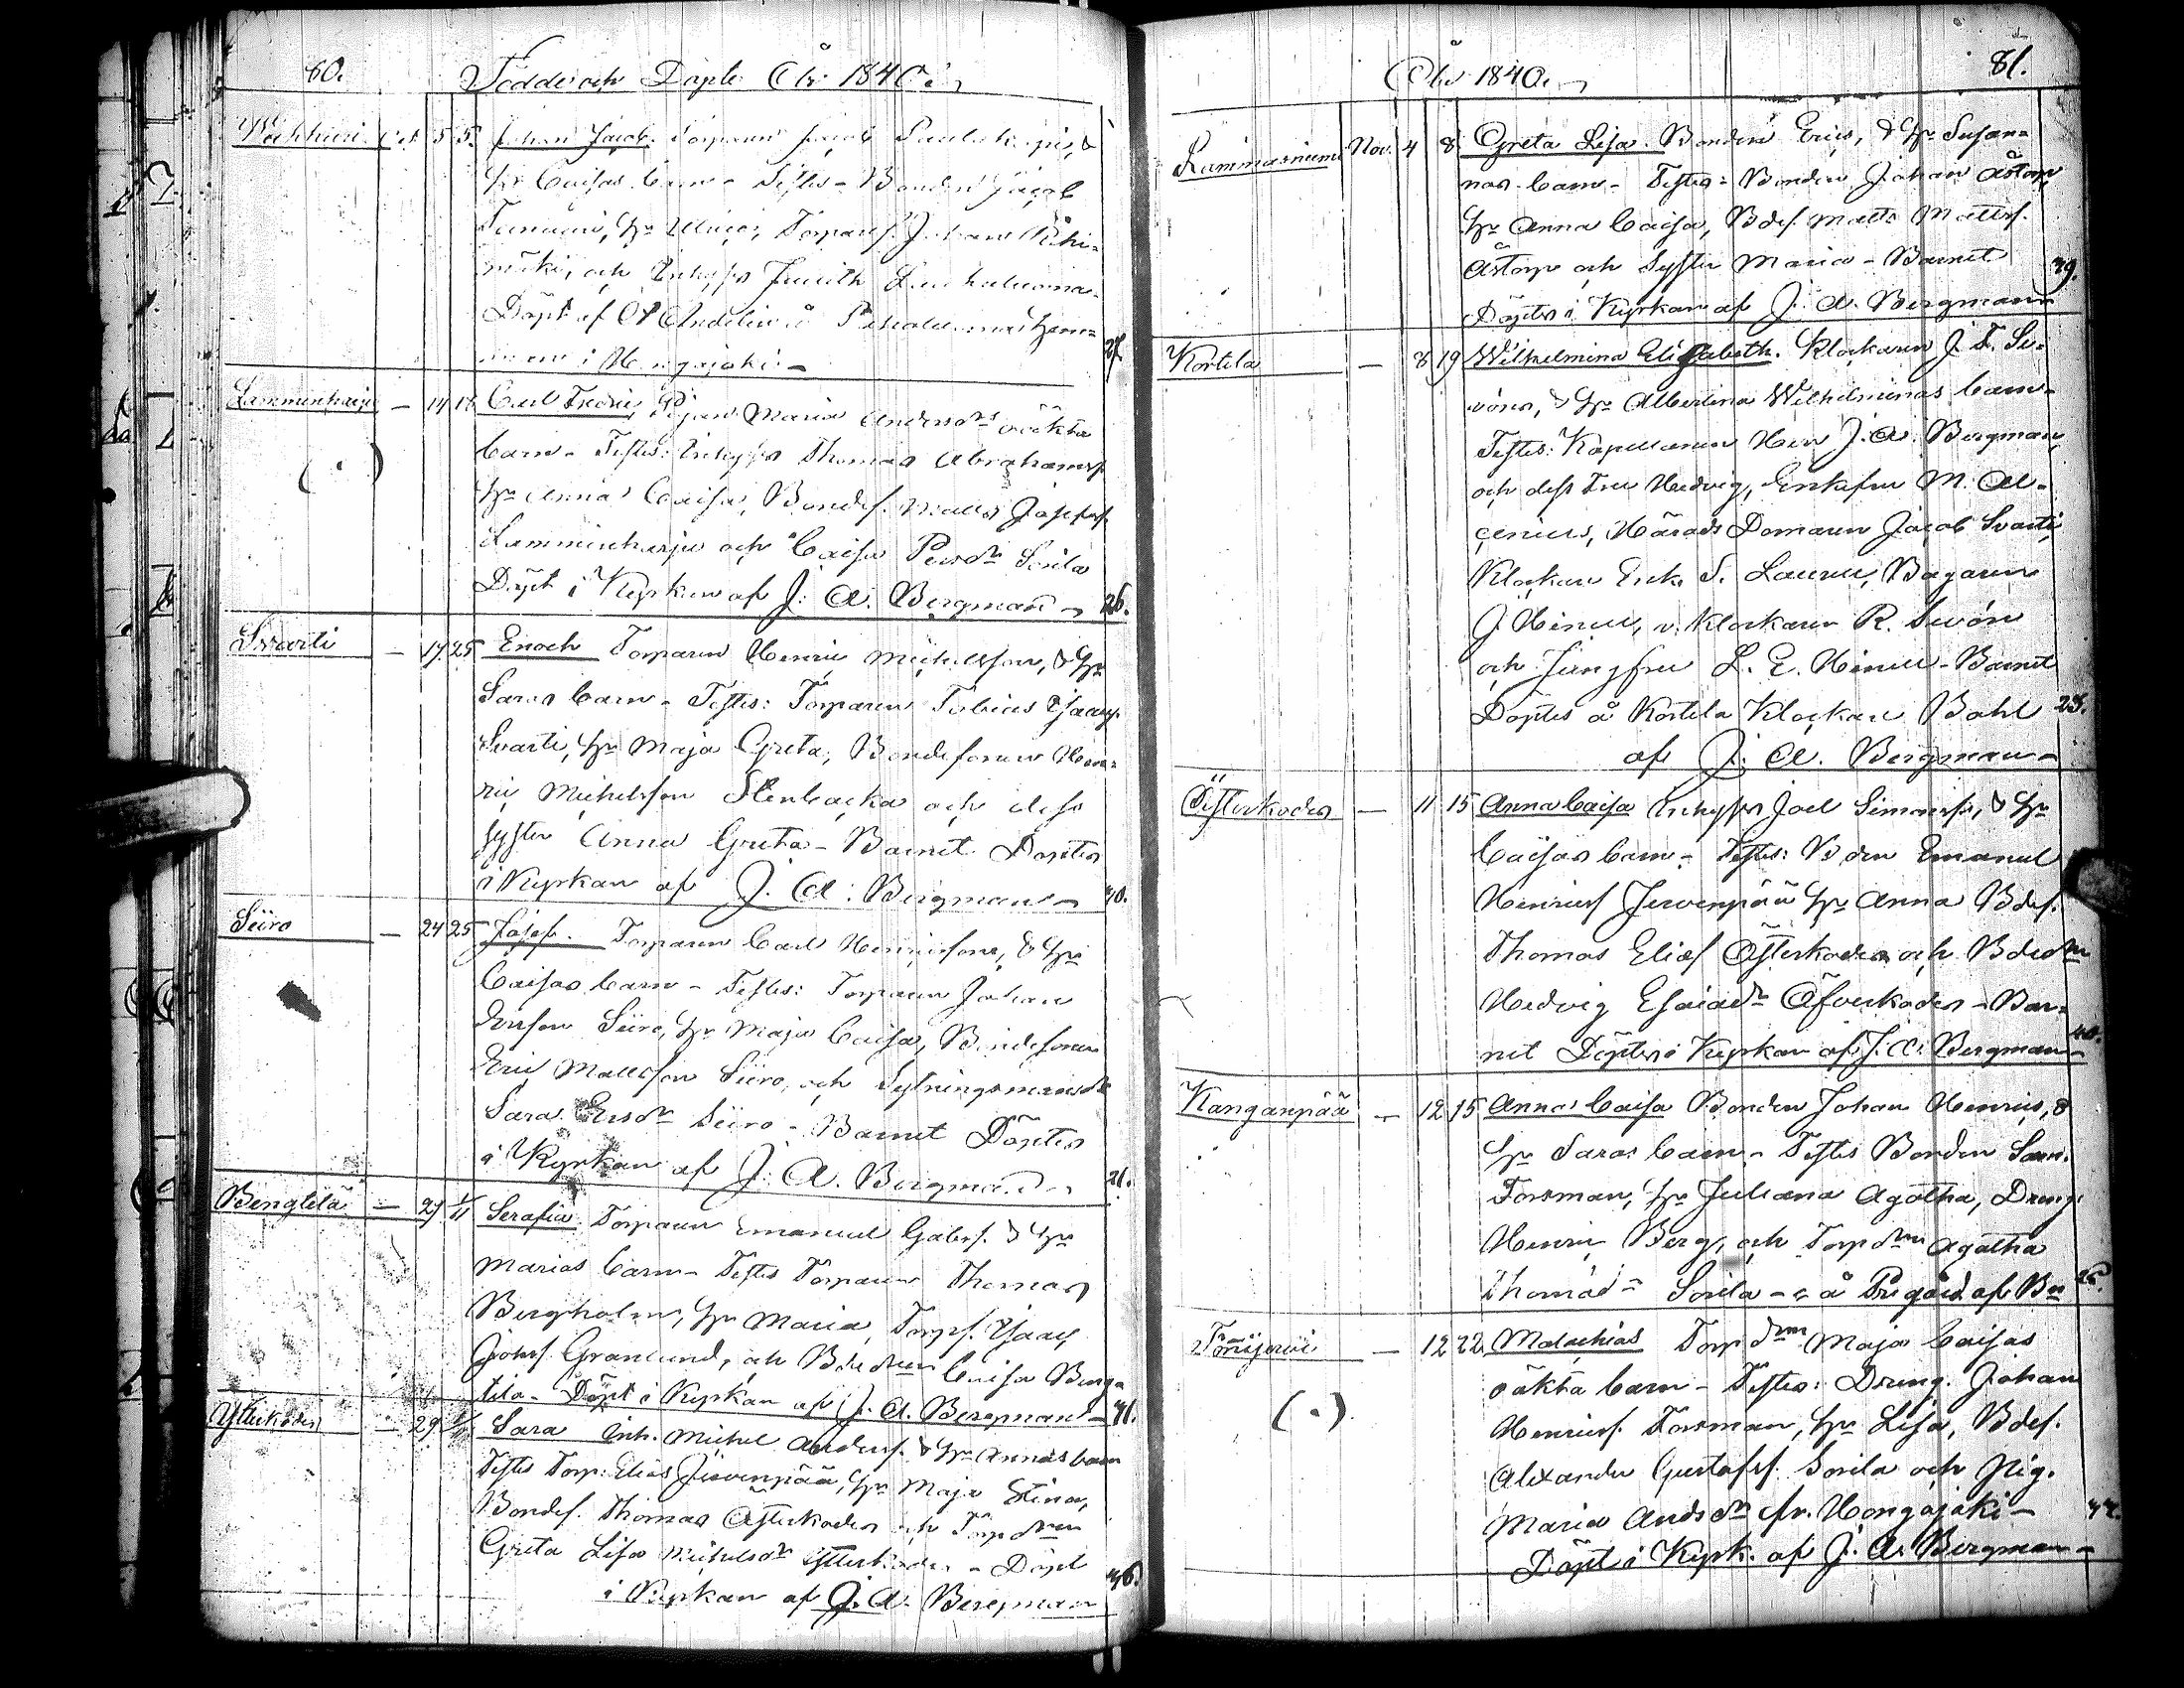 80. Födde och Döpte År 1840.
Oct. 5 5. Johan Jacob. Torparen Jacob &
Hu Caisas barn - Testes - Bonden Jacob
Hu Torparef. Johan Rihi=
mäki, och Inhyses Judith
Döpt af And
i Hongajoki -
27.
Lamminharju - 14 18 Carl Fredric, Pigan Maria Andersdr oäkta
( . ) barn - Testes: Inhyses Thomas Abrahamsf.
Hu Anna Caisa, Bondes. Josefsf.
Lamminharju och Caisa Persdr Sorila
Döpt i Kyrkan af J. A. Bergman - 26.
Svarti - 17 25 Enoch Torparen Henric Michelsson, & Hu
Saras barn - Testes: Torparen Tobias Isacsf.
Svarti, Hu Maja Greta, Bondesonen Hen=
ric Michelsson Stenbacka och dess
syster Anna Greta - Barnet Döptes
i Kyrkan af J. A. Bergman - 40.
Siiro - 24 25 Josef. Torparen Carl Henricsons, & Hu
Caisas barn - Testes: Torparen Johan
Ersson Siiro, Hu Maja Caisa, Bondesonen
Eric Mattsson Siiro, och Sytningsmansdr
Sara Ersdr Siiro - Barnet Döptes
i Kyrkan af J. A. Bergman - 21.
Bengtilä - 27 1/11 Serafia. Torparen Emanuel Gabrsf. & Hu
Marias barn - Testes Torparen Thomas
Bergholm, Hu Maria, Torpf. Isaac
Johsf. Granlund, och Bdedren Caisa Beng=
tila - Döpt i Kyrkan af J. A. Bergman - 41.
Ytterkoden - 29 1/11 Sara Inh. Michel Andersf. & Hu Annas barn
Testes Torp. Elias Jervenpää, Hu Maja Stina,
Bondes. Thomas Österkoden och Torpdren
Greta Lisa Michelsdr Ytterkoden - Döpt
i Kyrkan af J. A. Bergman 36.
År 1840. 81.
Nov. 4 8 Greta Lisa. Bonden Erics, & Hu Susan=
nas barn - Testes: Bonden Johan Åstorp,
Hu Anna Caisa, Bdes. Matts Mattsf.
Åstorp och Syster Maria - Barnet
Döptes i Kyrkan af J. A. Bergman
39.
Kortela - 8 19 Wilhelmina Elisabeth. Klockaren J. F. Se=
vóns, & Hu Albertina Wilhelminas barn -
Testes: Kapellanen Herr J. A. Bergman,
och dess Fru Hedvig, Enkefru M. Al=
cenius, Härads Domaren Jacob Svarti,
Klockare Enk. S. Bagaren
J. Hinell, v. Klockaren R. Sevón
och Jungfru L. E. Hinell - Barnet
Döptes å Kortela Klockare Bohl 23.
af J. A. Bergman -
Österkoden - 11 15 Anna Caisa Inhyses Joel Simonsf, & Hu
Caisas barn - Testes: Bden Emanuel
Henricsf Jervenpää Hu Anna Bdes.
Thomas Eliesf Österkoden och Bdedren
Hedvig Esaiasdr Öfverkoden - Bar=
net Döptes i Kyrkan af J. A. Bergman -
40.
Kanganpää - 12 15 Anna Caisa Bonden Johan Henrics, &
Hu Saras barn - Testes Bonden Sam.
Forsman, Hu Juliana Agatha, Dreng.
Henric Berg, och Torpdren Agatha
Thomasdr Sorila - å Prgård af Bn
- 12 22 Malachias Torpdren Maja Caisas
( . ) oäkta barn - Testes: Dreng. Johan
Henricsf. Forsman, Hu Lisa, Bdes.
Alexander Gustafsf. Sorila och Pig.
Maria Andsdr fr. Hongajoki -
Döpt i Kyrk. af J. A. Bergman -